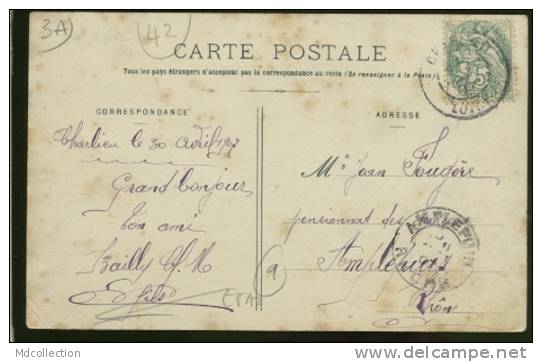 3A
42
CARTE POSTALE
Tous les pays étrangers n'acceptent pas la correspondance au recto (Se renseigner à la Poste)
CORRESPONDANCE
ADRESSE
Charlieu le 30 avril 1907
Grand bonjour
Ton ami
Bailly
& fils
Mr Jean Fougère
pensionnat des
Amplepuis
Rhône
5c
LOIRE
AMPLEPUIS
9
Mdcollection
http://mdcollection.delcampe.net